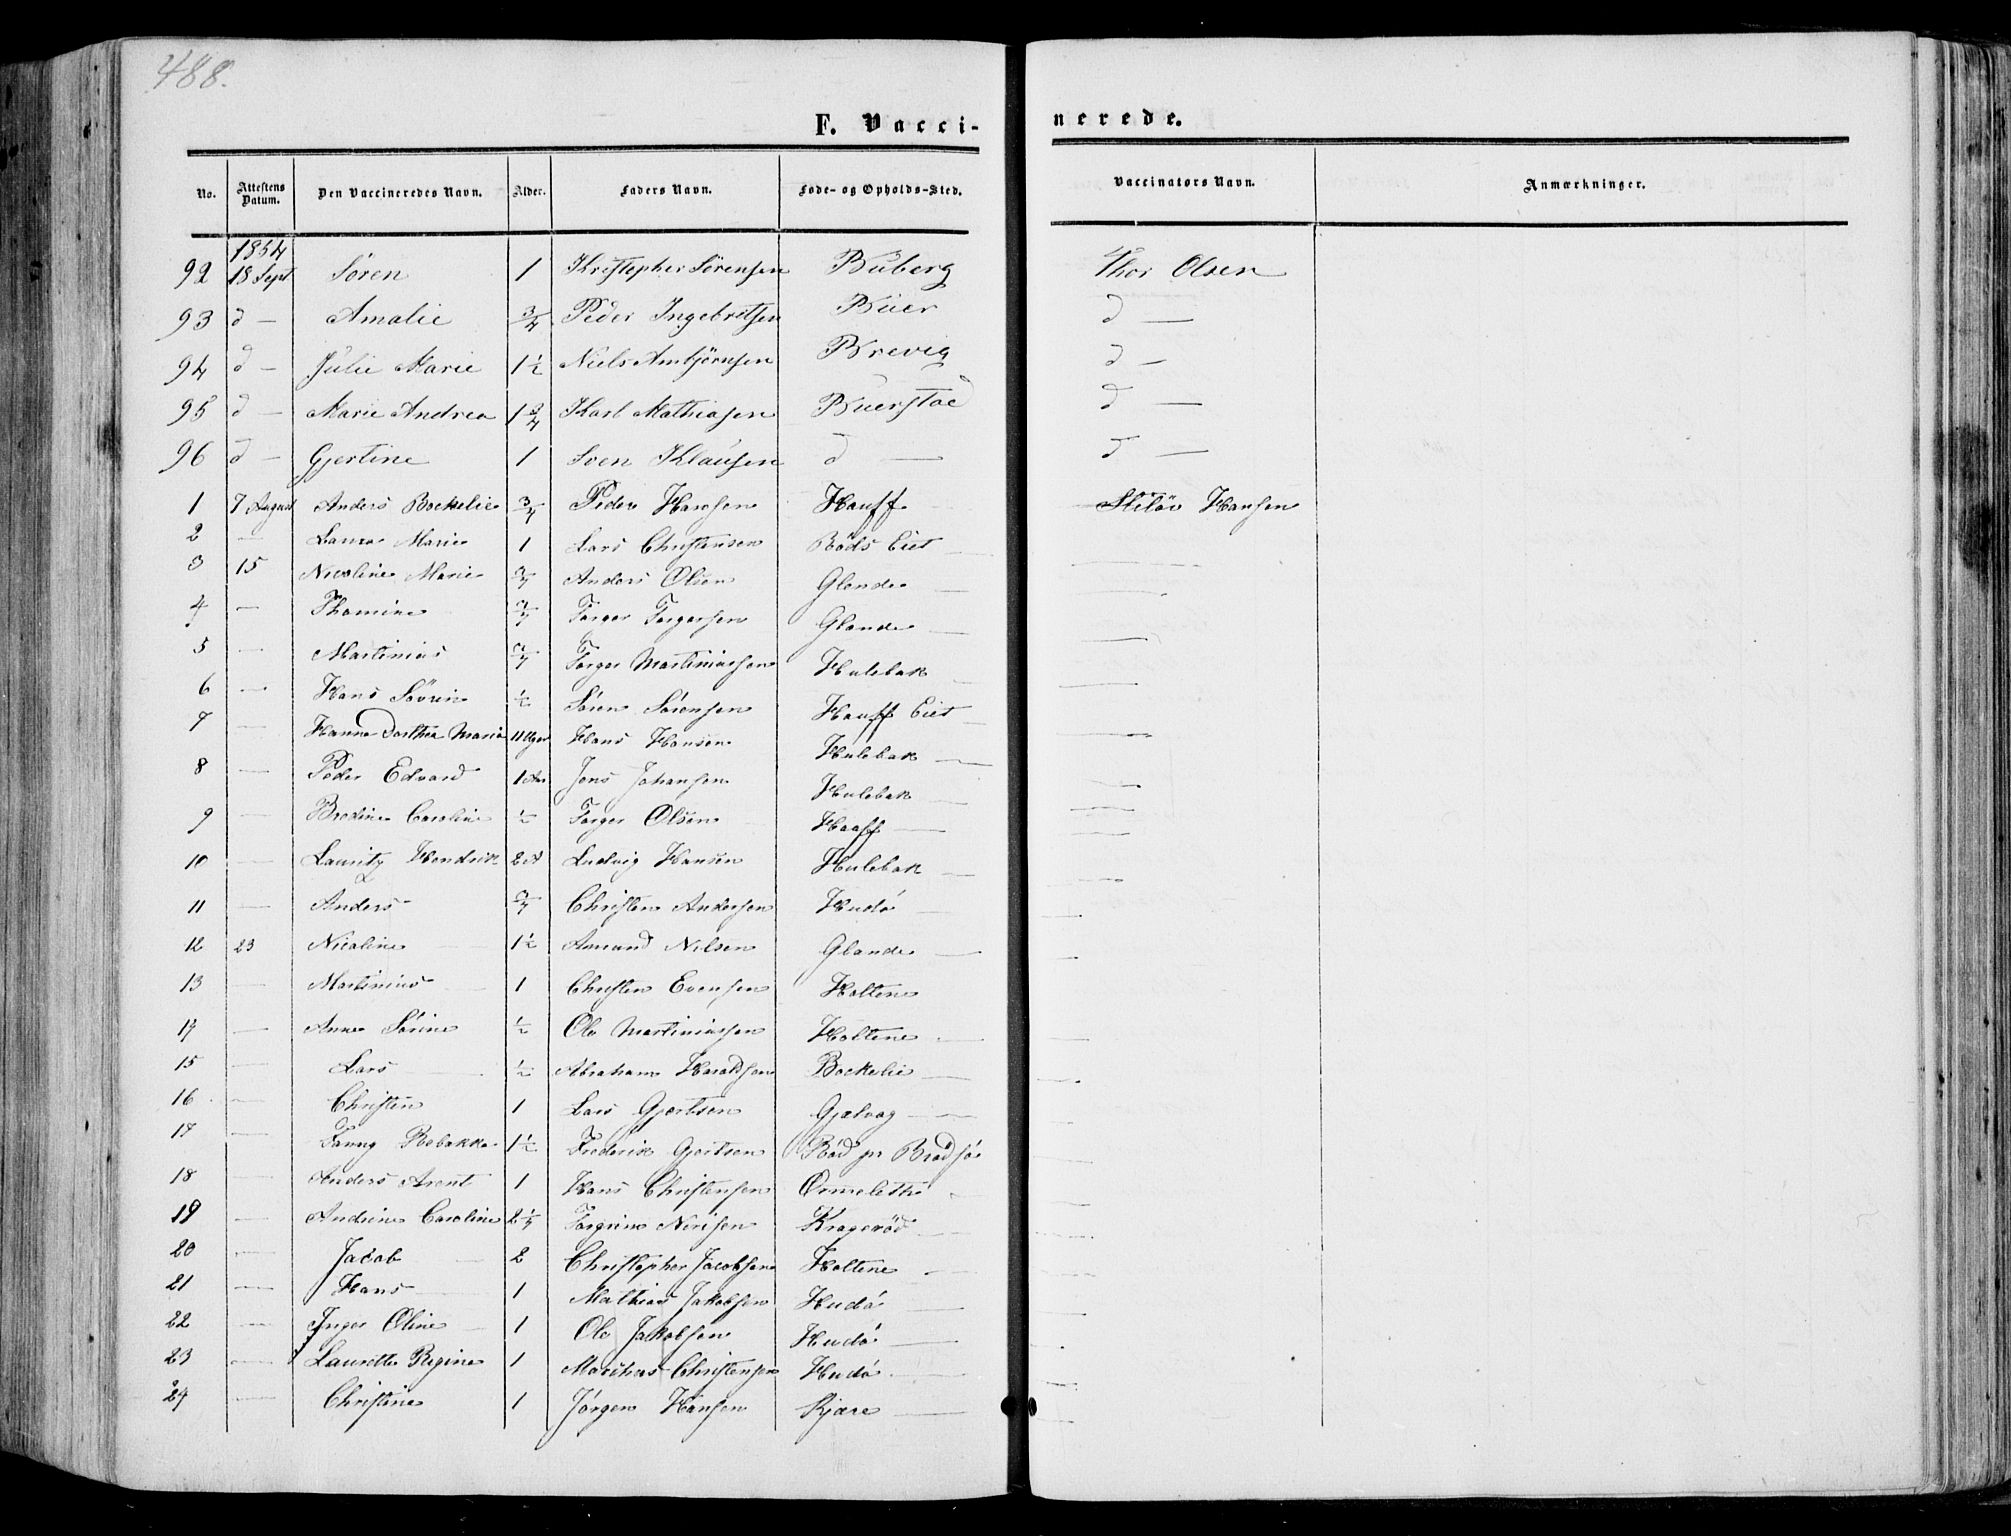 488.
F. Vacci-
nerede.
No. Attestens Datum. Den Vaccineredes Navn. Alder. Faders Navn. Føde- og Opholds-Sted. Vaccinators Navn. Anmærkninger.
1854
92 18 Sept Søren 1 Kristopher Sørensen Buberg Thor Olsen
93 d — Amalie 3/4 Peder Ingebretsen Buer d —
94 d — Julie Marie 1 1/2 Niels Ambjørnsen Brevig d —
95 d — Marie Andrea 1 3/4 Karl Mathiasen Buerstad d —
96 d — Gjertine 1 Sven Klausen d — d —
1 7 August Anders Bockelie 3/4 Peder Hansen Hauff Hansen
2 — Laura Marie 1 Lars Christensen Røds Eiet —
3 15 Nicoline Marie 3/4 Anders Olsen Glende —
4 — Thomine 3/4 Torger Torgersen Glende —
5 — Martinius 3/4 Torger Martiniussen Hulebak —
6 — Hans Søvrin 1/2 Søren Sørensen Hauff Eiet —
7 — Hanna Dorthea Maria 11 Uger Hans Hansen Hulebak —
8 — Peder Edvard 1 Aar Jens Johansen Hulebak —
9 — Bredine Caroline 1/2 Torger Olsen Hauff —
10 — Lauritz Hendrik 2 A Ludvig Hansen Hulebak —
11 — Anders 3/4 Christen Andersen Hudø —
12 23 Nicoline 1 1/2 Amund Nilsen Glende —
13 — Martinius 1 Christen Evensen Holtene
14 — Anne Sørine 1/2 Ole Martiniussen Holtene —
15 — Lars 1/2 Abraham Haraldsen Bockelie —
16 — Christen 1 Lars Gjertsen Gjetvag —
17 — Fanny Rebekka 1 1/2 Frederik Gjertsen Rød pr Brødsø
18 — Anders Arent 1 Hans Christensen Ormelette —
19 — Andrine Caroline 2 1/4 Torgrim Nerisen Kragerød —
20 — Jacob 2 Christopher Jacobsen Holtene —
21 — Hans 1 Mathias Jakobsen Hudø —
22 — Inger Oline 1 Ole Jakobsen Hudø —
23 — Laurette Regine 1 Marthus Christensen Hudø —
24 — Christine 1 Jørgen Hansen Kjære —